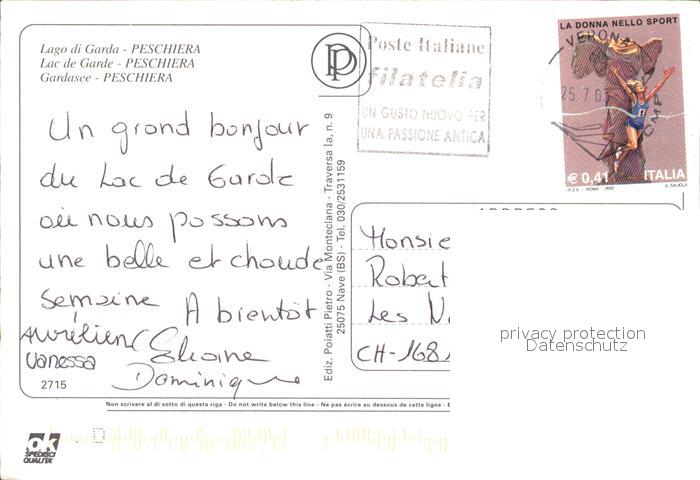 Lago di Garda - PESCHIERA
Lac de Garde - PESCHIERA
Gardasee - PESCHIERA
PP
Poste Italiane
filatelia
UN GUSTO NUOVO PER
UNA PASSIONE ANTICA
LA DONNA NELLO SPORT
VERONA
25.7.0
CMP
€ 0,41 ITALIA
I.P.Z.S. - ROMA - 2002 A. SALIOLA
Un grand bonjour
du Lac de Garde
où nous passons
une belle et chaude
semaine A bientôt
Aurélien
Vanessa
Dominique
2715
Ediz. Poiatti Pietro - Via Monteclana - Traversa Ia, n. 9
25075 Nave (BS) - Tel. 030/2531159
Monsie
Robert
Les
CH-168
privacy protection
Datenschutz
Non scrivere al di sotto di questa riga - Do not write below this line - Ne pas écrire au dessous de cette ligne -
ok
SPEDISCI
QUALITA'